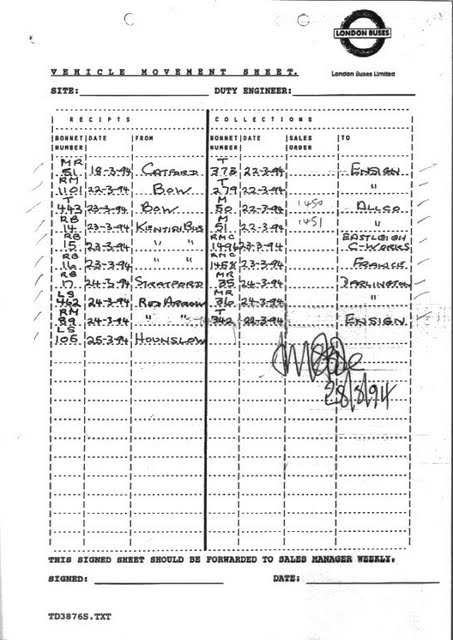 LONDON BUSES
London Buses Limited
VEHICLE MOVEMENT SHEET.
SITE: DUTY ENGINEER:
RECEIPTS COLLECTIONS
BONNET NUMBER DATE FROM BONNET NUMBER DATE SALES ORDER TO
MR 51 18-3-94 CATFORD T 378 22-3-94 ENSIGN
RM 1101 22-3-94 BOW T 279 22-3-94 "
T 443 23-3-94 BOW M 50 22-3-94 1450 ALLCO
RB 14 23-3-94 KENTISH BUS M 51 22-3-94 1451 "
RB 15 23-3-94 " " RMC 1496 23-3-94 EASTLEIGH C-WORKS
RB 16 23-3-94 " " RMC 1458 23-3-94 FRANCE
RB 17 24-3-94 STRATFORD MR 35 24-3-94 DARLINGTON
LS 462 24-3-94 RED ARROW MR 36 24-3-94 "
RM 89 24-3-94 " " T 342 22-3-94 ENSIGN
LS 106 25-3-94 HOUNSLOW
28/3/94
THIS SIGNED SHEET SHOULD BE FORWARDED TO SALES MANAGER WEEKLY.
SIGNED: DATE:
TD3876S.TXT